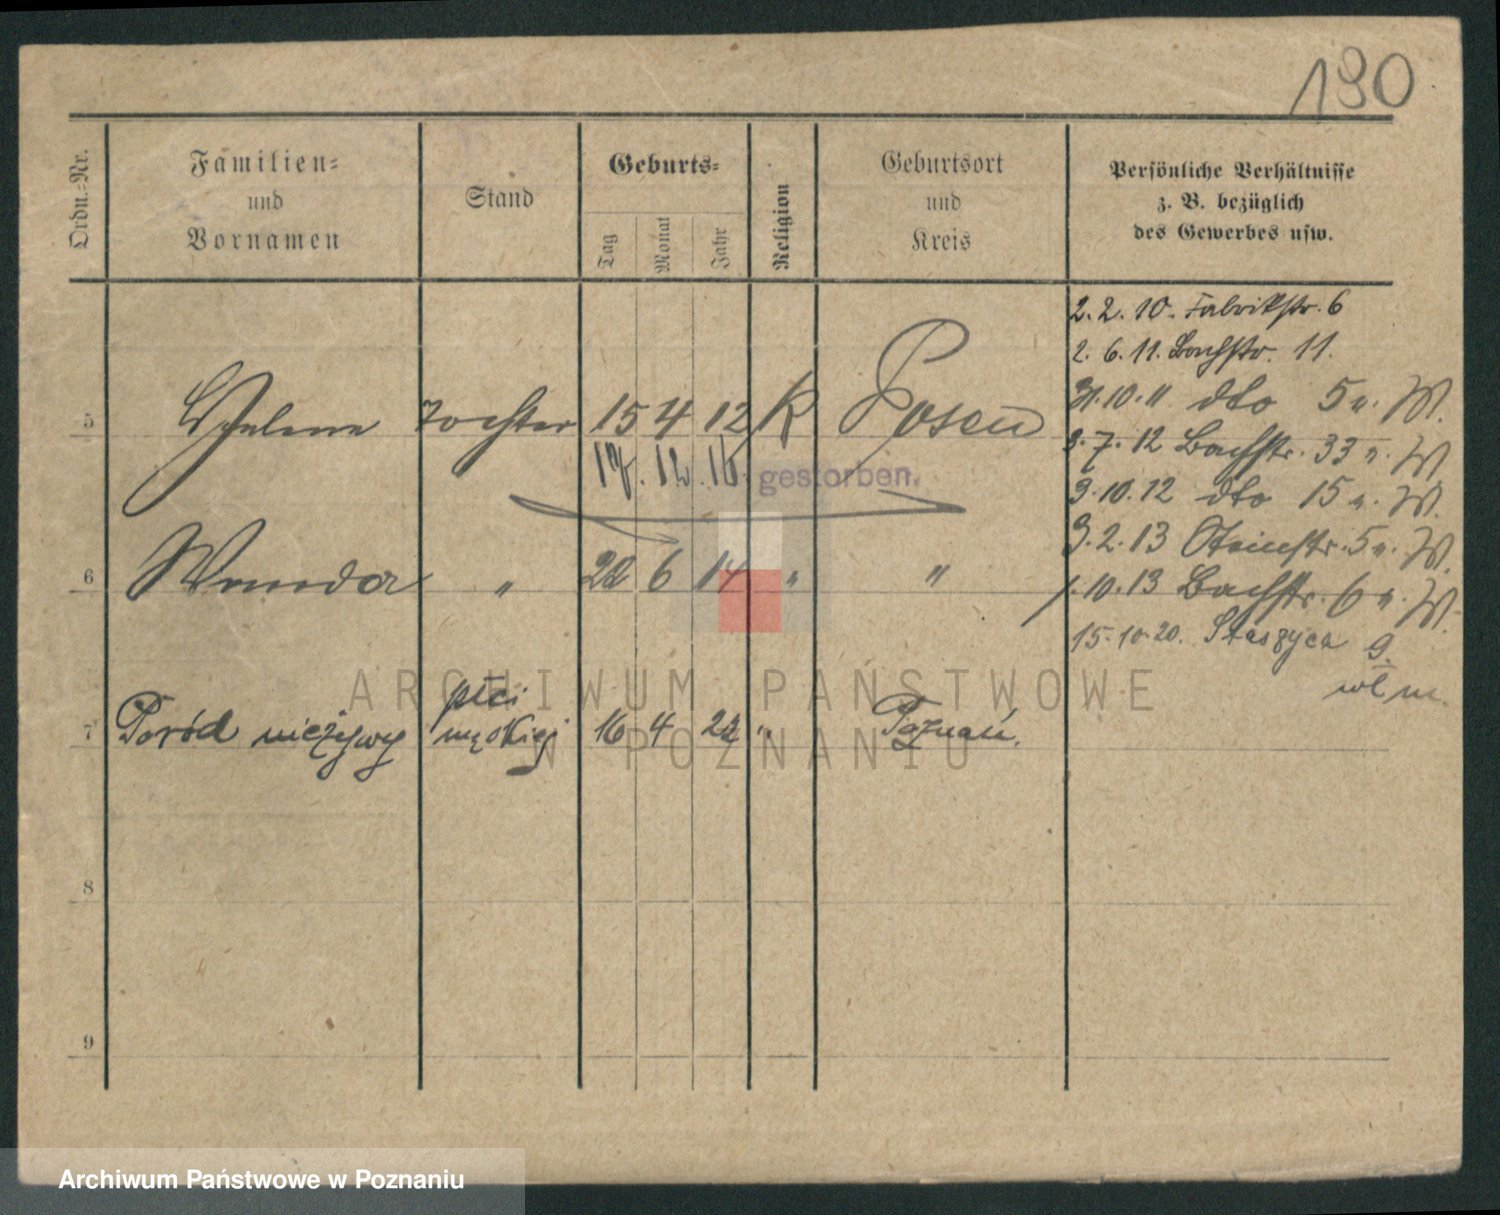 190
Ordn.=Nr.
Familien=
und
Vornamen
Stand
Geburts=
Tag
Monat
Jahr
Religion
Geburtsort
und
Kreis
Persönliche Verhältnisse
z. B. bezüglich
des Gewerbes usw.
2. 2. 10. Fabrikstr. 6
2. 6. 11. Bachstr. 11.
31. 10. 11 dto 5 u. W.
5 Helene Tochter 15 4 12 K Posen
3. 7. 12 Bachstr. 33 u. W
17. 12. 16. gestorben.
9. 10. 12 dto 15 u. W.
3. 2. 13 5 u. W.
6 Wanda " 22 6 14 " "
1. 10. 13 Bachstr. 6 u. W.
15. 10. 20. Staszyca 9.
wl m.
ARCHIWUM PAŃSTWOWE
W POZNANIU
7 Poród nieżywy płci męskiej 16 4 22 " Poznań.
8
9
Archiwum Państwowe w Poznaniu